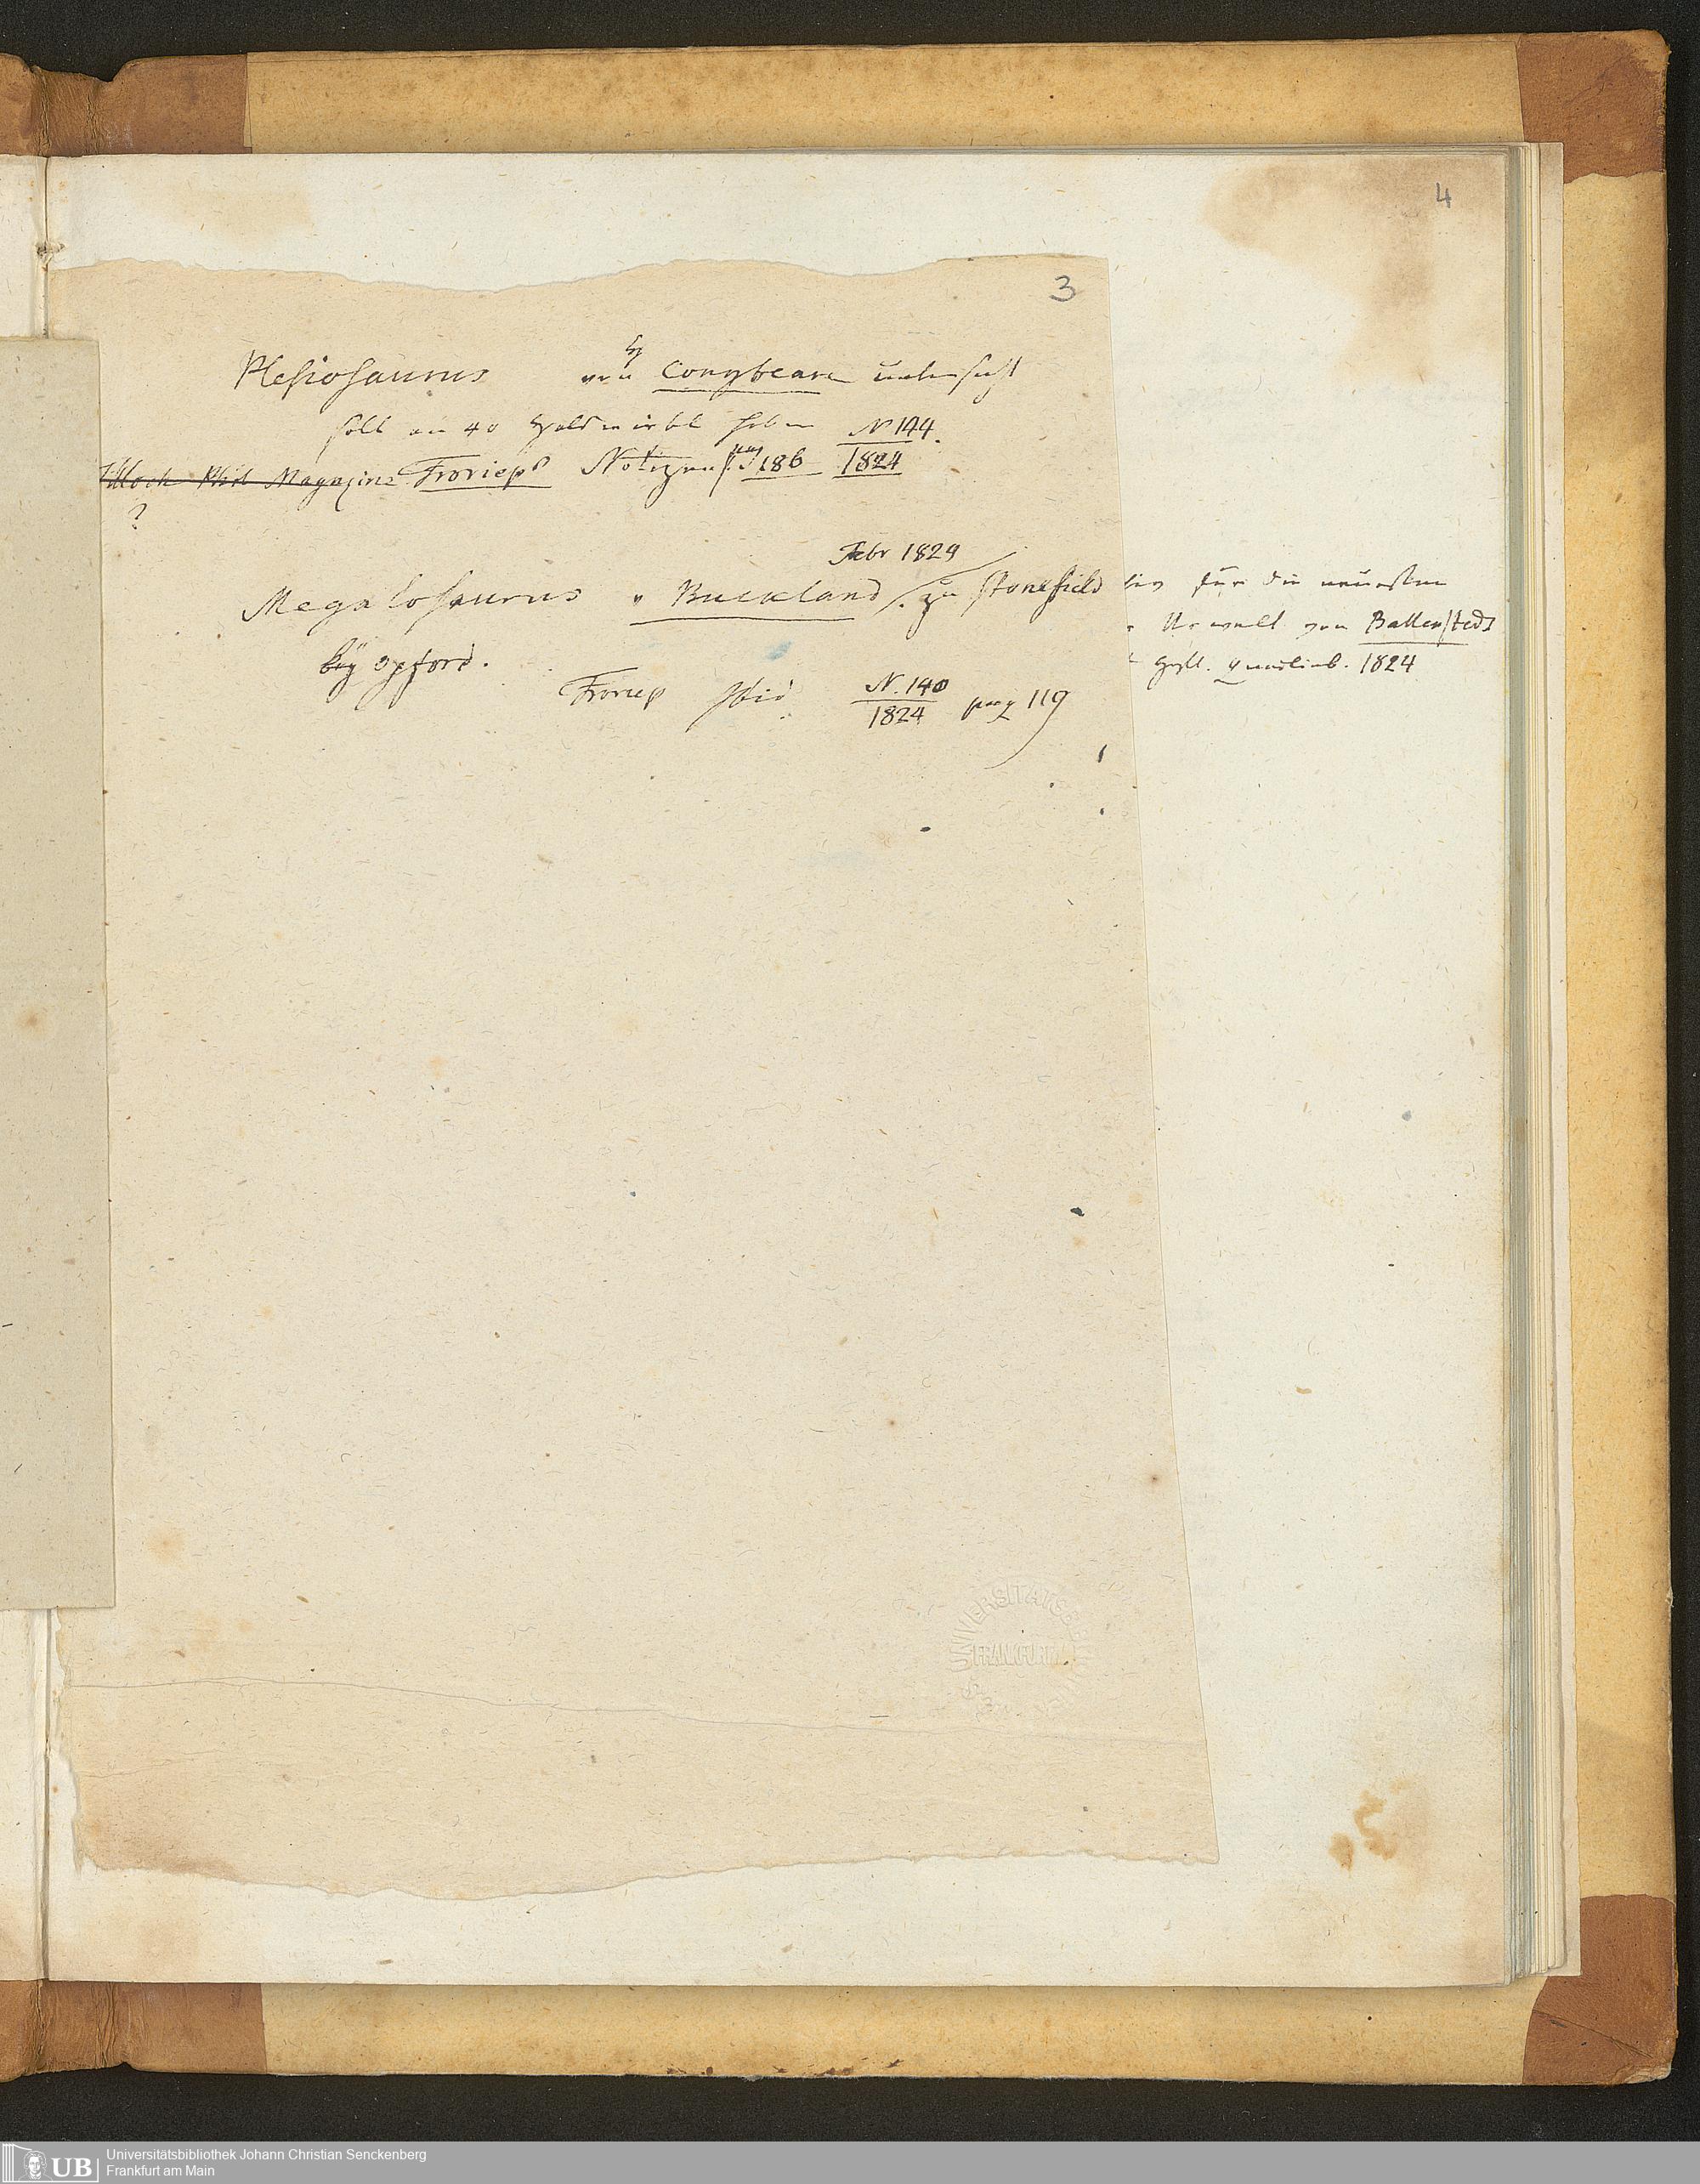 4
3
Plesiosaurus von H Conybeare untersucht
soll an 40 Halswirbel haben N 144.
Tilloch Phil Magazine Frorieps Notizen pag 186 1824
?
Febr 1824
Megalosaurus v Buckland zu Stonesfield
bey Oxford.
Froriep Ibid N. 140 pag 119
1824
für die neuesten
Urwelt von Ballenstedt
Heft. Quedlinb. 1824
UNIVERSITÄTSB
FRANKFURT
UB Universitätsbibliothek Johann Christian Senckenberg
Frankfurt am Main